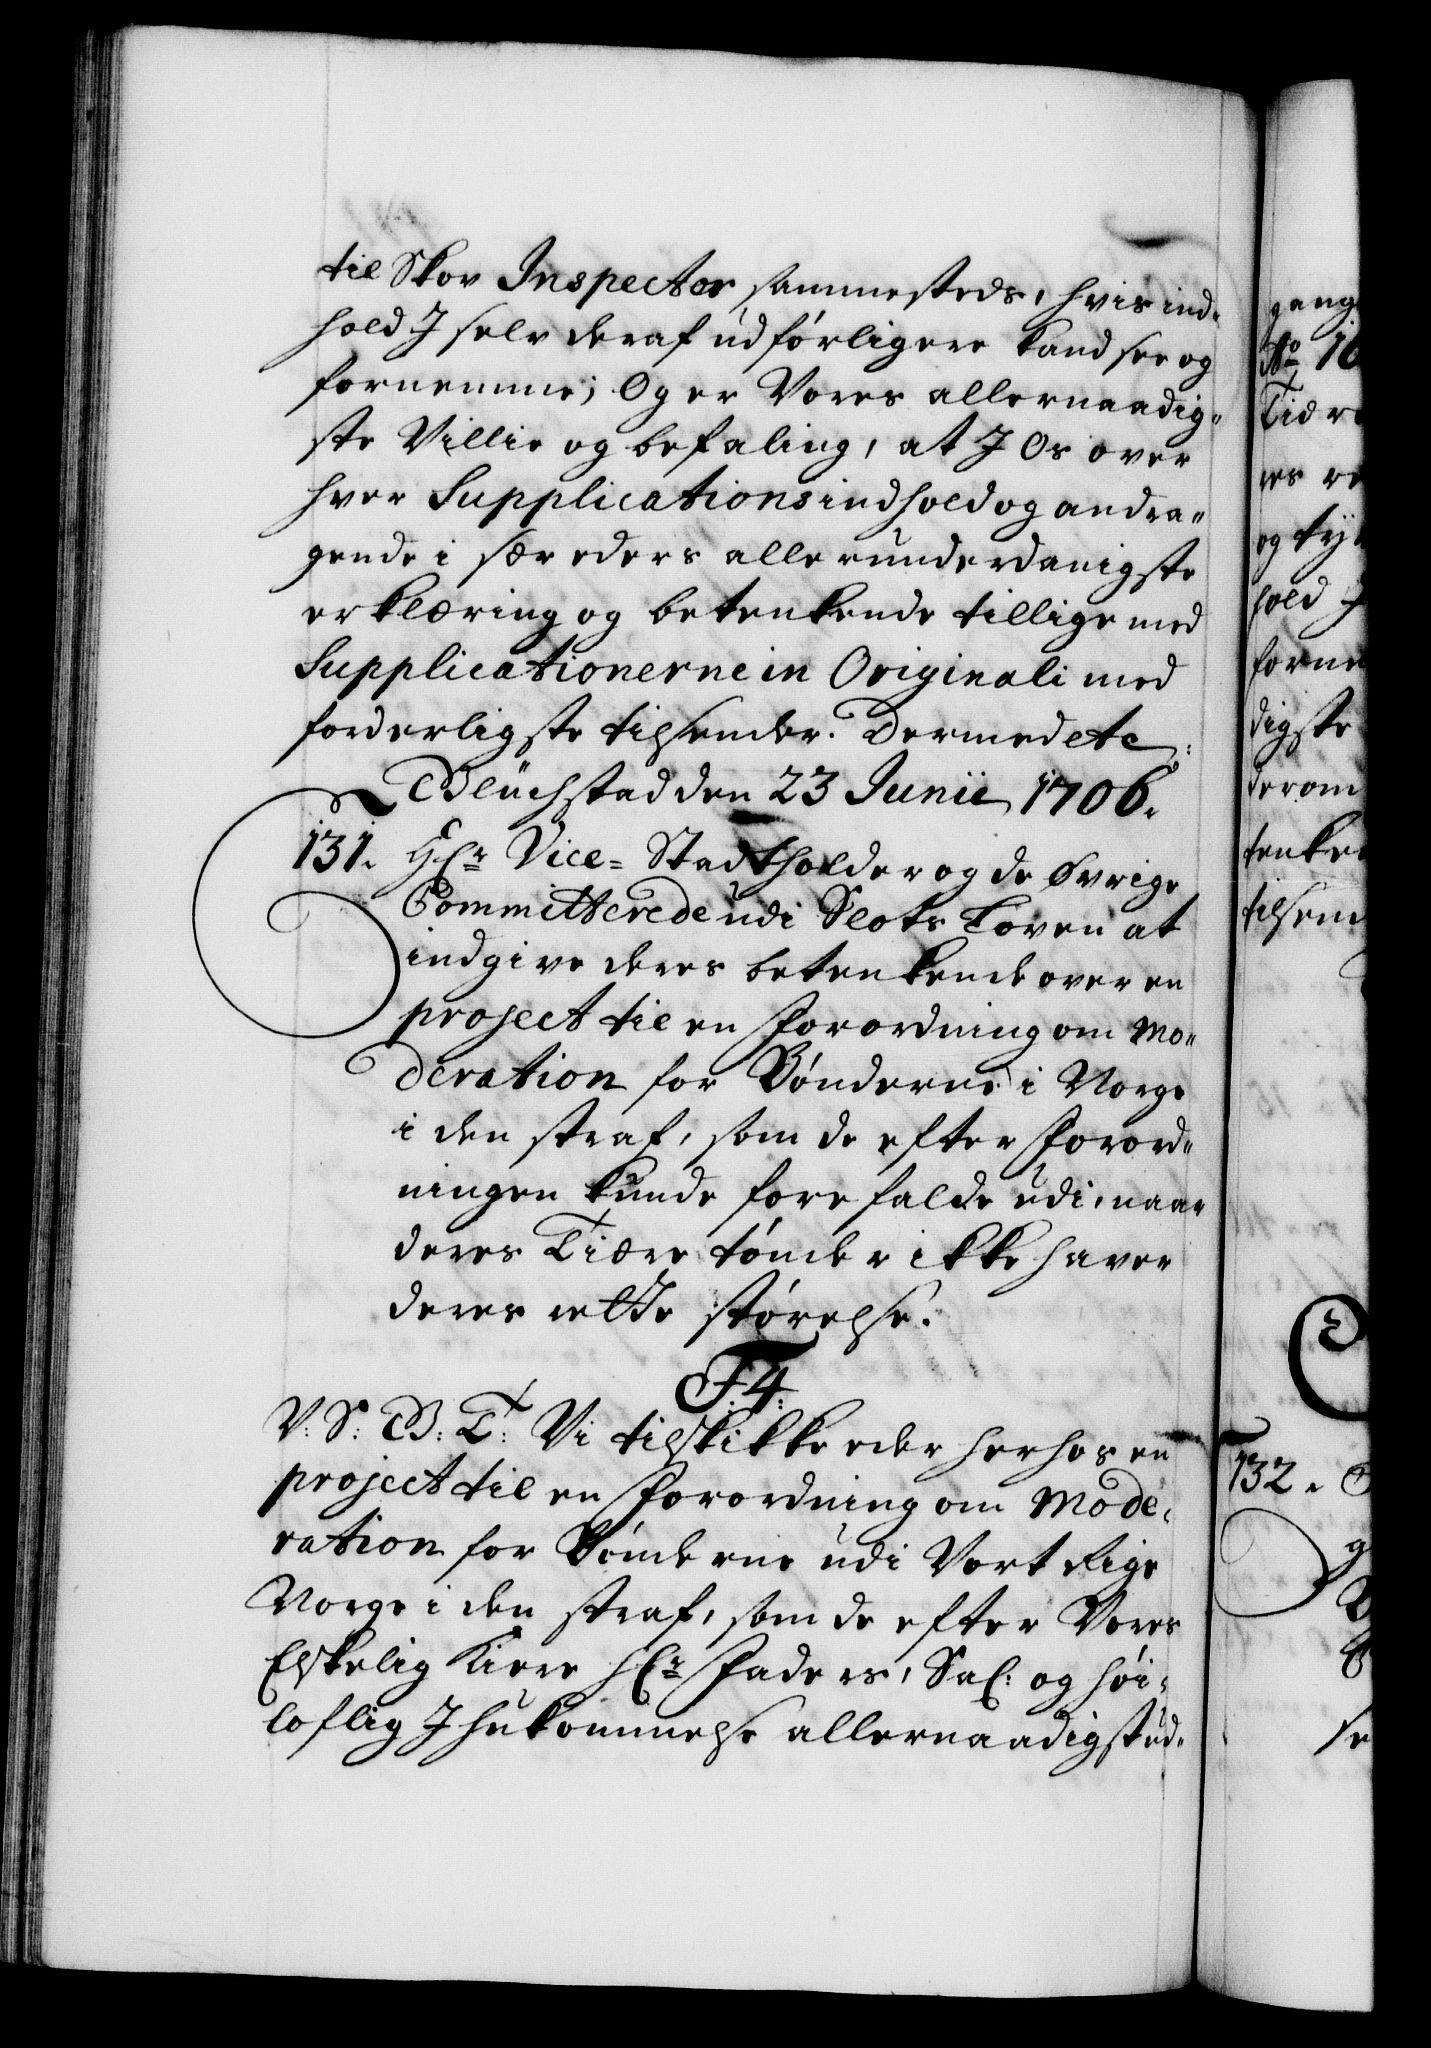 til Skov Inspector sammesteds, hvis ind-
hold I selv deraf udførligere kand see og
fornemme; Og er Vores allernaadig-
ste Villie og befaling, at I Os over
hver Supplications indhold og andra-
gende i sær eders allerunderdanigste
erklæring og betenkende tillige med
Supplicationerne in Originali med
forderligste tilsender. Dermed etc:
Glückstad den 23 Junii 1706.
131. Hr. Vice-Stadtholder og de øvrige
Committerede udi Slots Loven at
indgive deres betenkende over en
project til en Forordning om Mo-
deration for Bønderne i Norge
i den straf, som de efter Forord-
ningen kunde forefalde udi, naar
deres Tiære tønder ikke haver
deres rette størelse.
F: 4:
V: S: G: T: Vi tilskikke eder herhos en
project til en Forordning om Mode-
ration for Bønderne udi Vort Rige
Norge i den straf, som de efter Vores
Elskelig Kiere Hr. Faders, Sal: og høi-
loflig Ihukommelse allernaadigst ud-
gang
No 16
Tiære
res re
og ty
hold I
forne
digste
derom
tenke
tilsend
132.